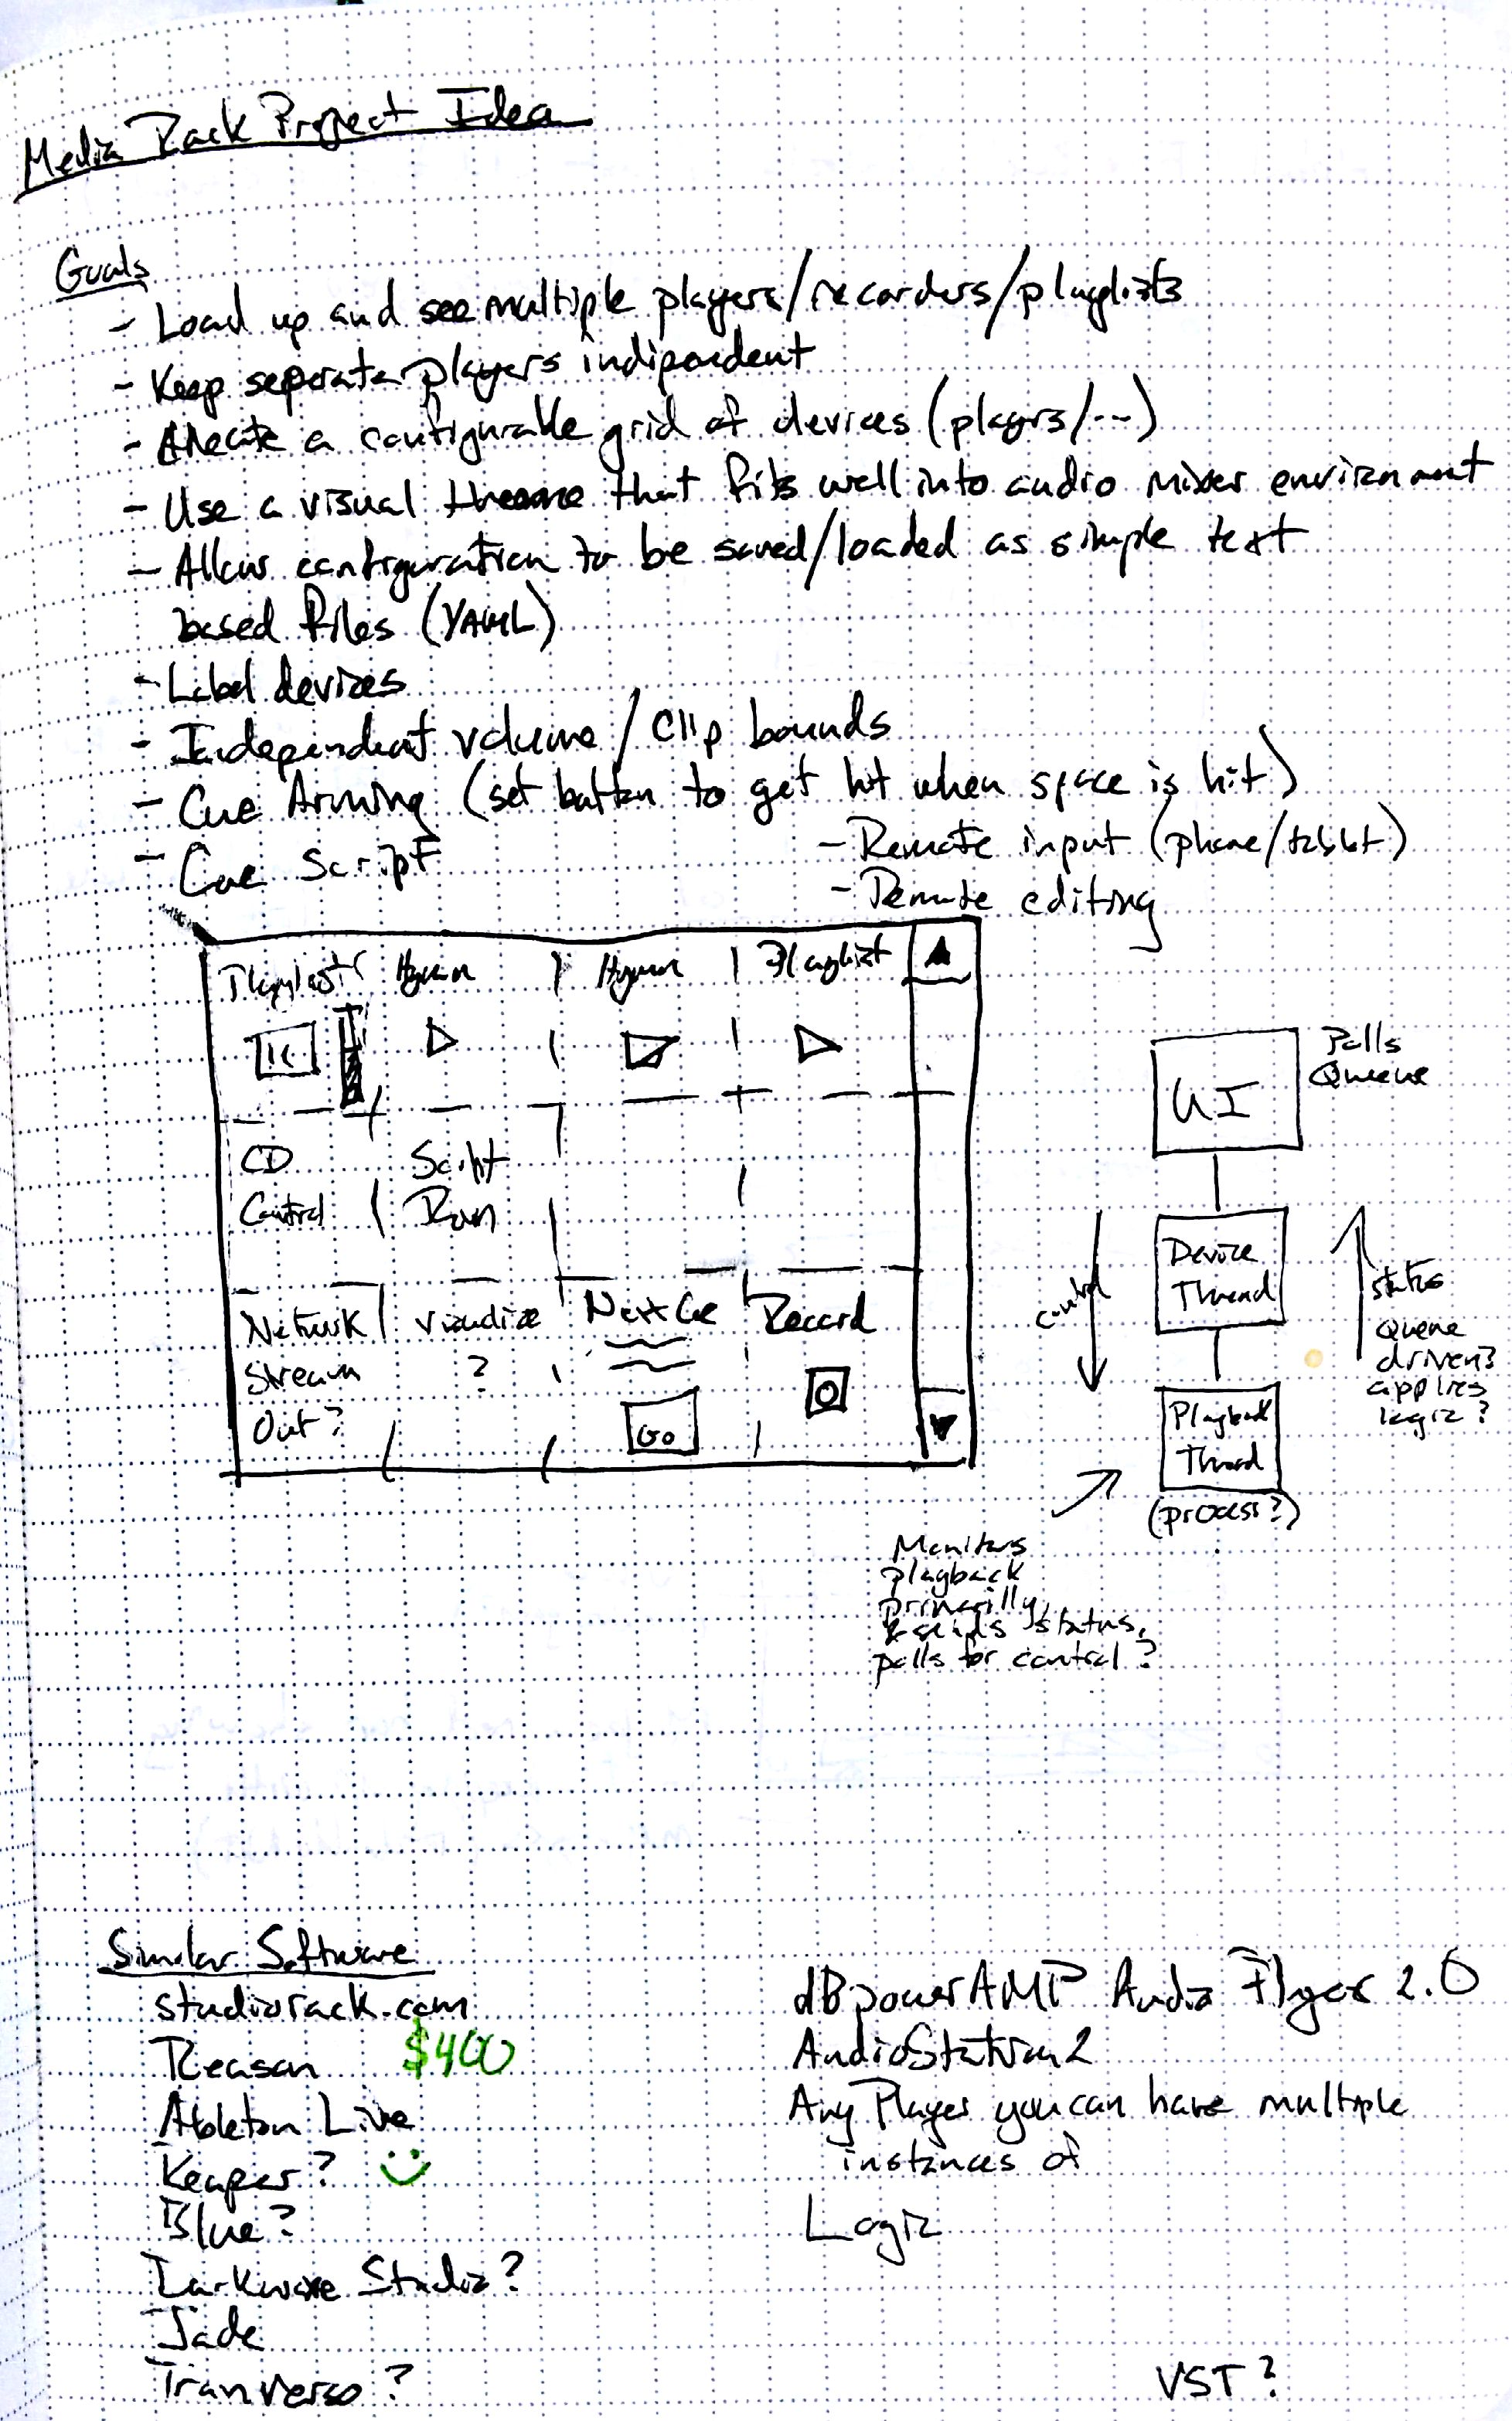 Media Rack Project Idea
Goals
- Load up and see multiple players/recorders/playlists
- Keep seperate players indipendent
- Create a configurable grid of devices (players/...)
- Use a visual theme that fits well into audio mixer environment
- Allow configuration to be saved/loaded as simple text
based files (YAML)
- Label devices
- Independent volume / Clip bounds
- Cue Arming (set button to get hit when space is hit)
- Cue Script
- Remote input (phone/tablet)
- Remote editing
Playlist Hymn Hymn Playlist
CD Script
Control Run
Network Visualize Next Cue Record
Stream ?
Out? Go
UI
Polls
Queue
Device
Thread
control
status
Queue
driven?
applies
logic?
Playback
Thread
(process?)
Monitors
playback
primarilly
& sends status,
polls for control?
Similar Software
studiorack.com
Reason $400
Ableton Live
Reaper?
Blue?
Darkwave Studio?
Jade
Tranverso?
dBpowerAMP Audio Player 2.0
AudioStation 2
Any Player you can have multiple
instances of
Logic
VST?